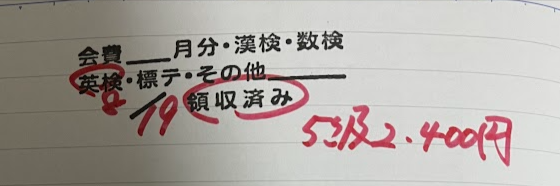 会費＿＿月分・漢検・数検
英検・標テ・その他＿＿＿＿
8/19 領収済み
5級2.400円